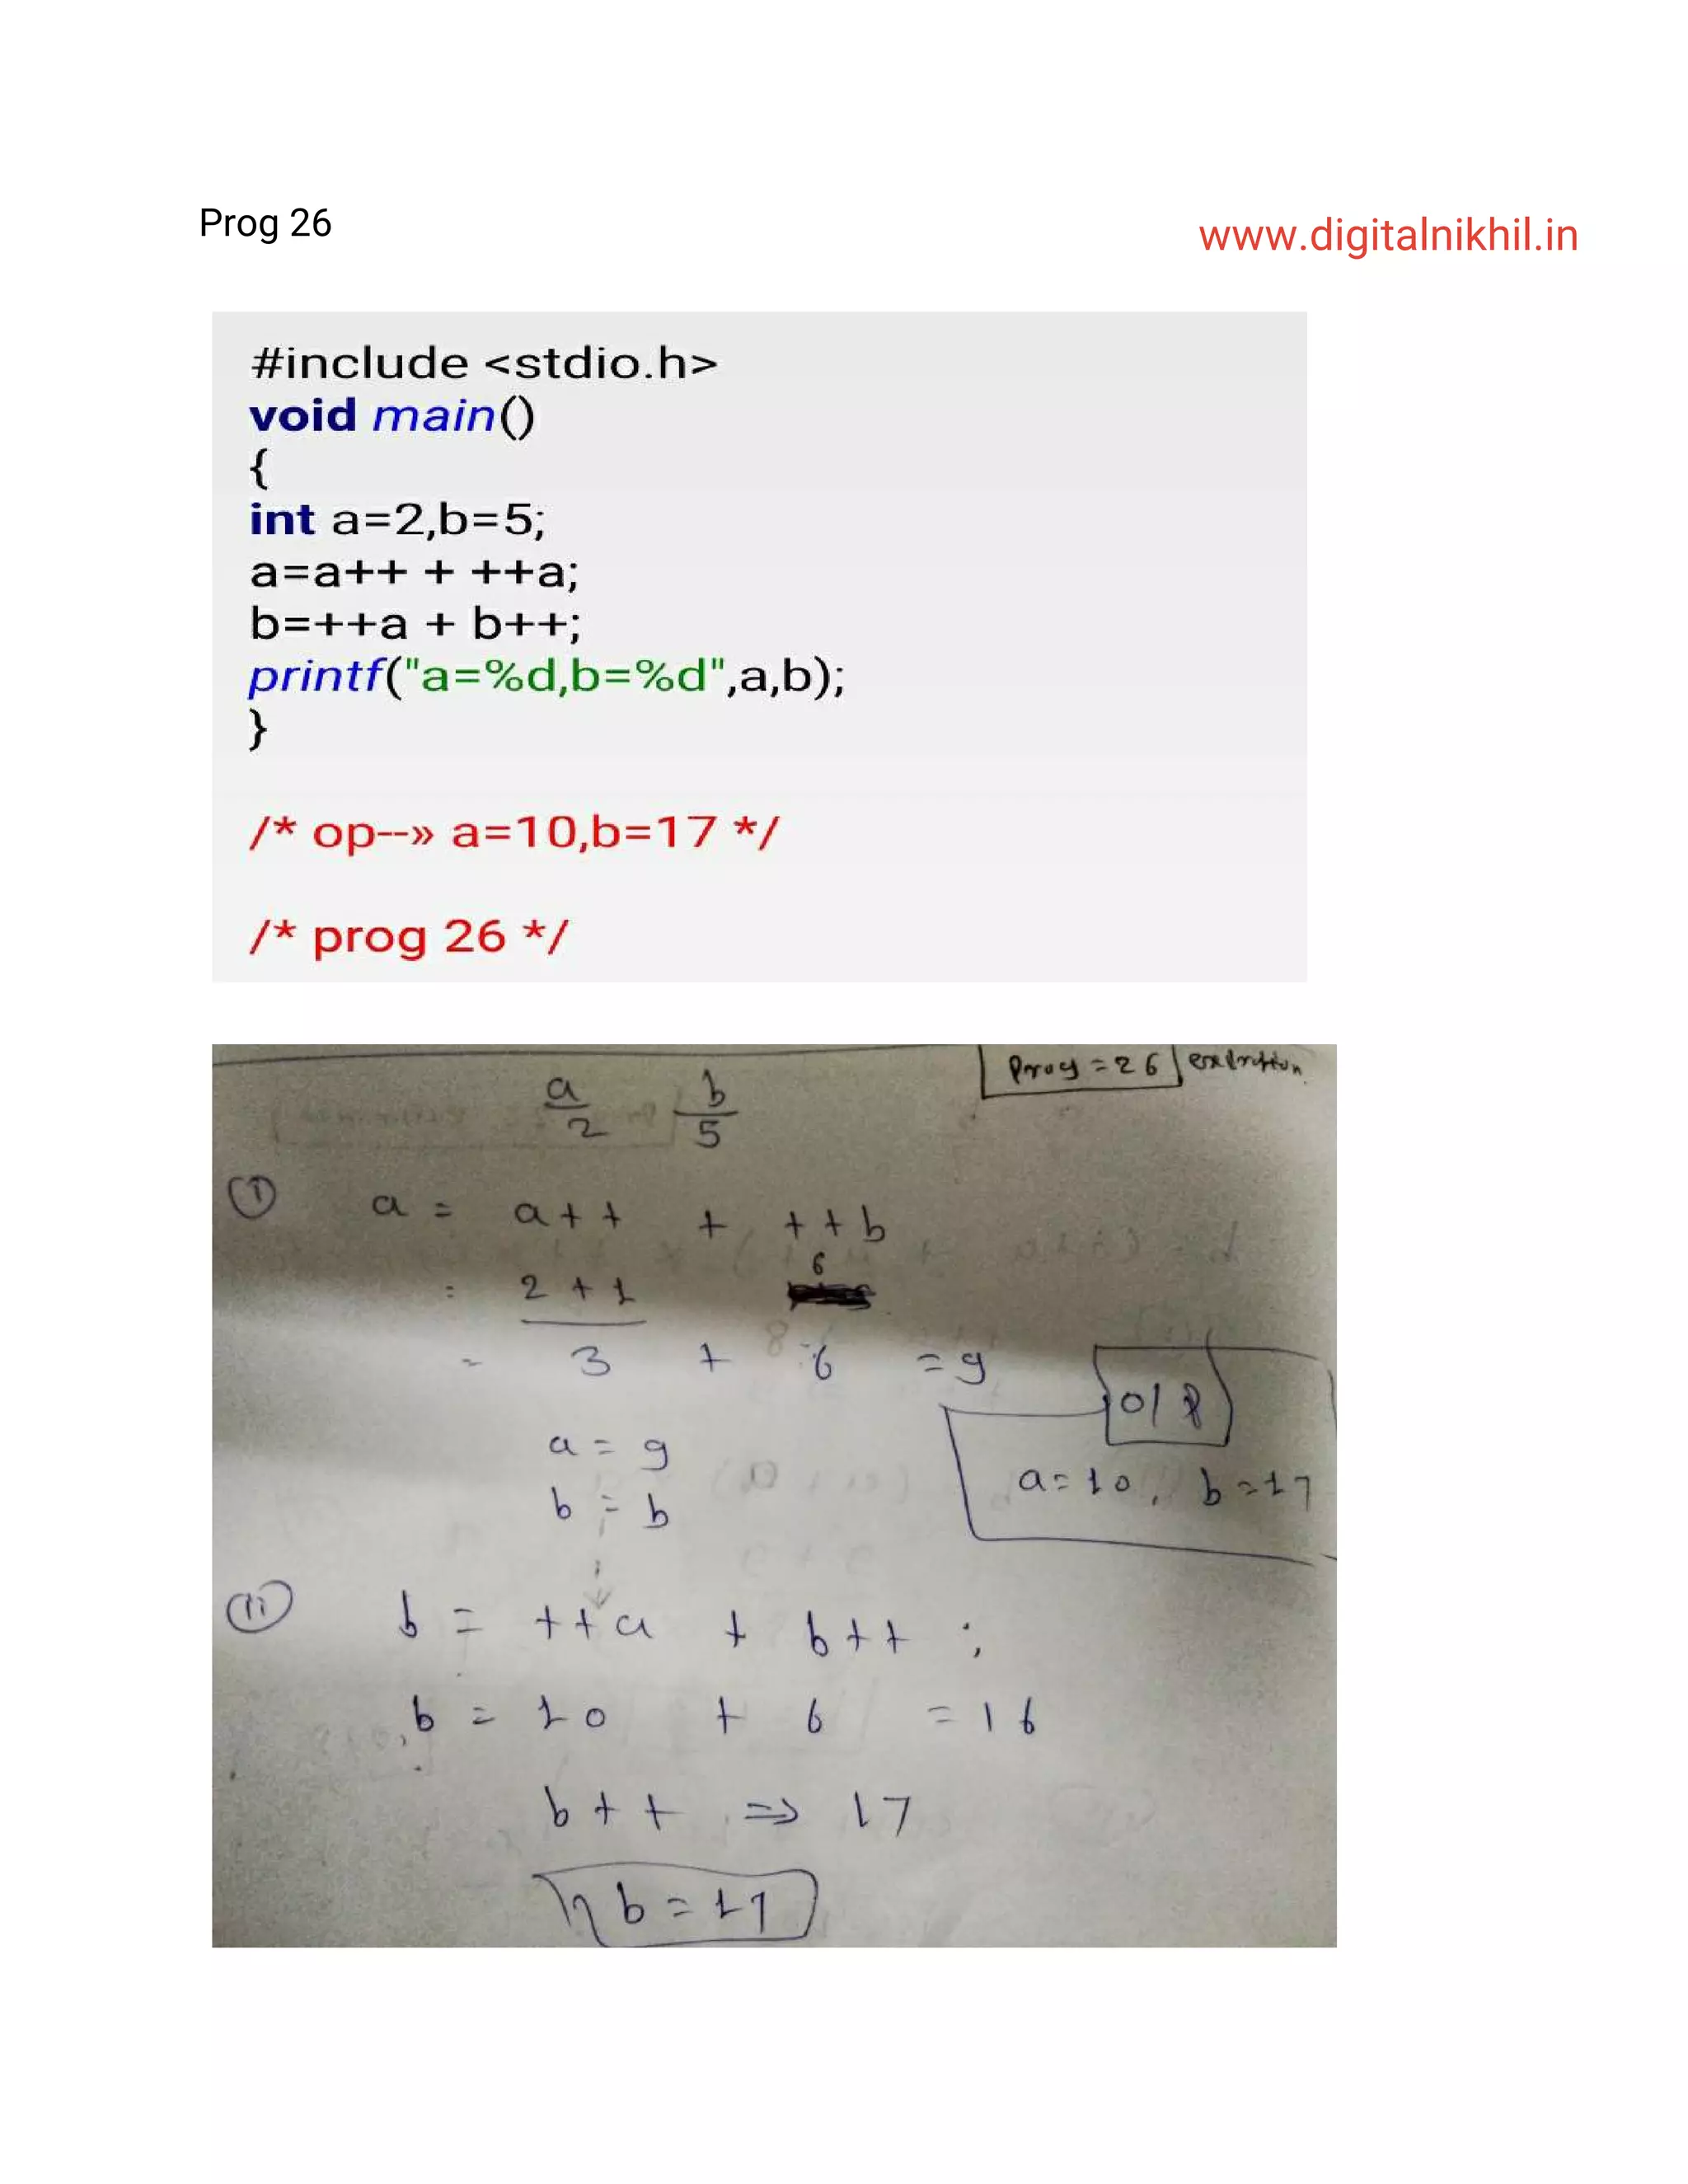 Prog 26
www.digitalnikhil.in
#include <stdio.h>
void main()
{
int a=2,b=5;
a=a++ + ++a;
b=++a + b++;
printf("a=%d,b=%d",a,b);
}
/* op--» a=10,b=17 */
/* prog 26 */
Prog = 26
a b
2 5
(I) a = a++ + ++b
= 2+1 6
= 3 + 6 = 9
O/P
a = 9
a=10, b=17
b = b
(II) b = ++a + b++ ;
b = 10 + 6 = 16
b++ => 17
b = 17